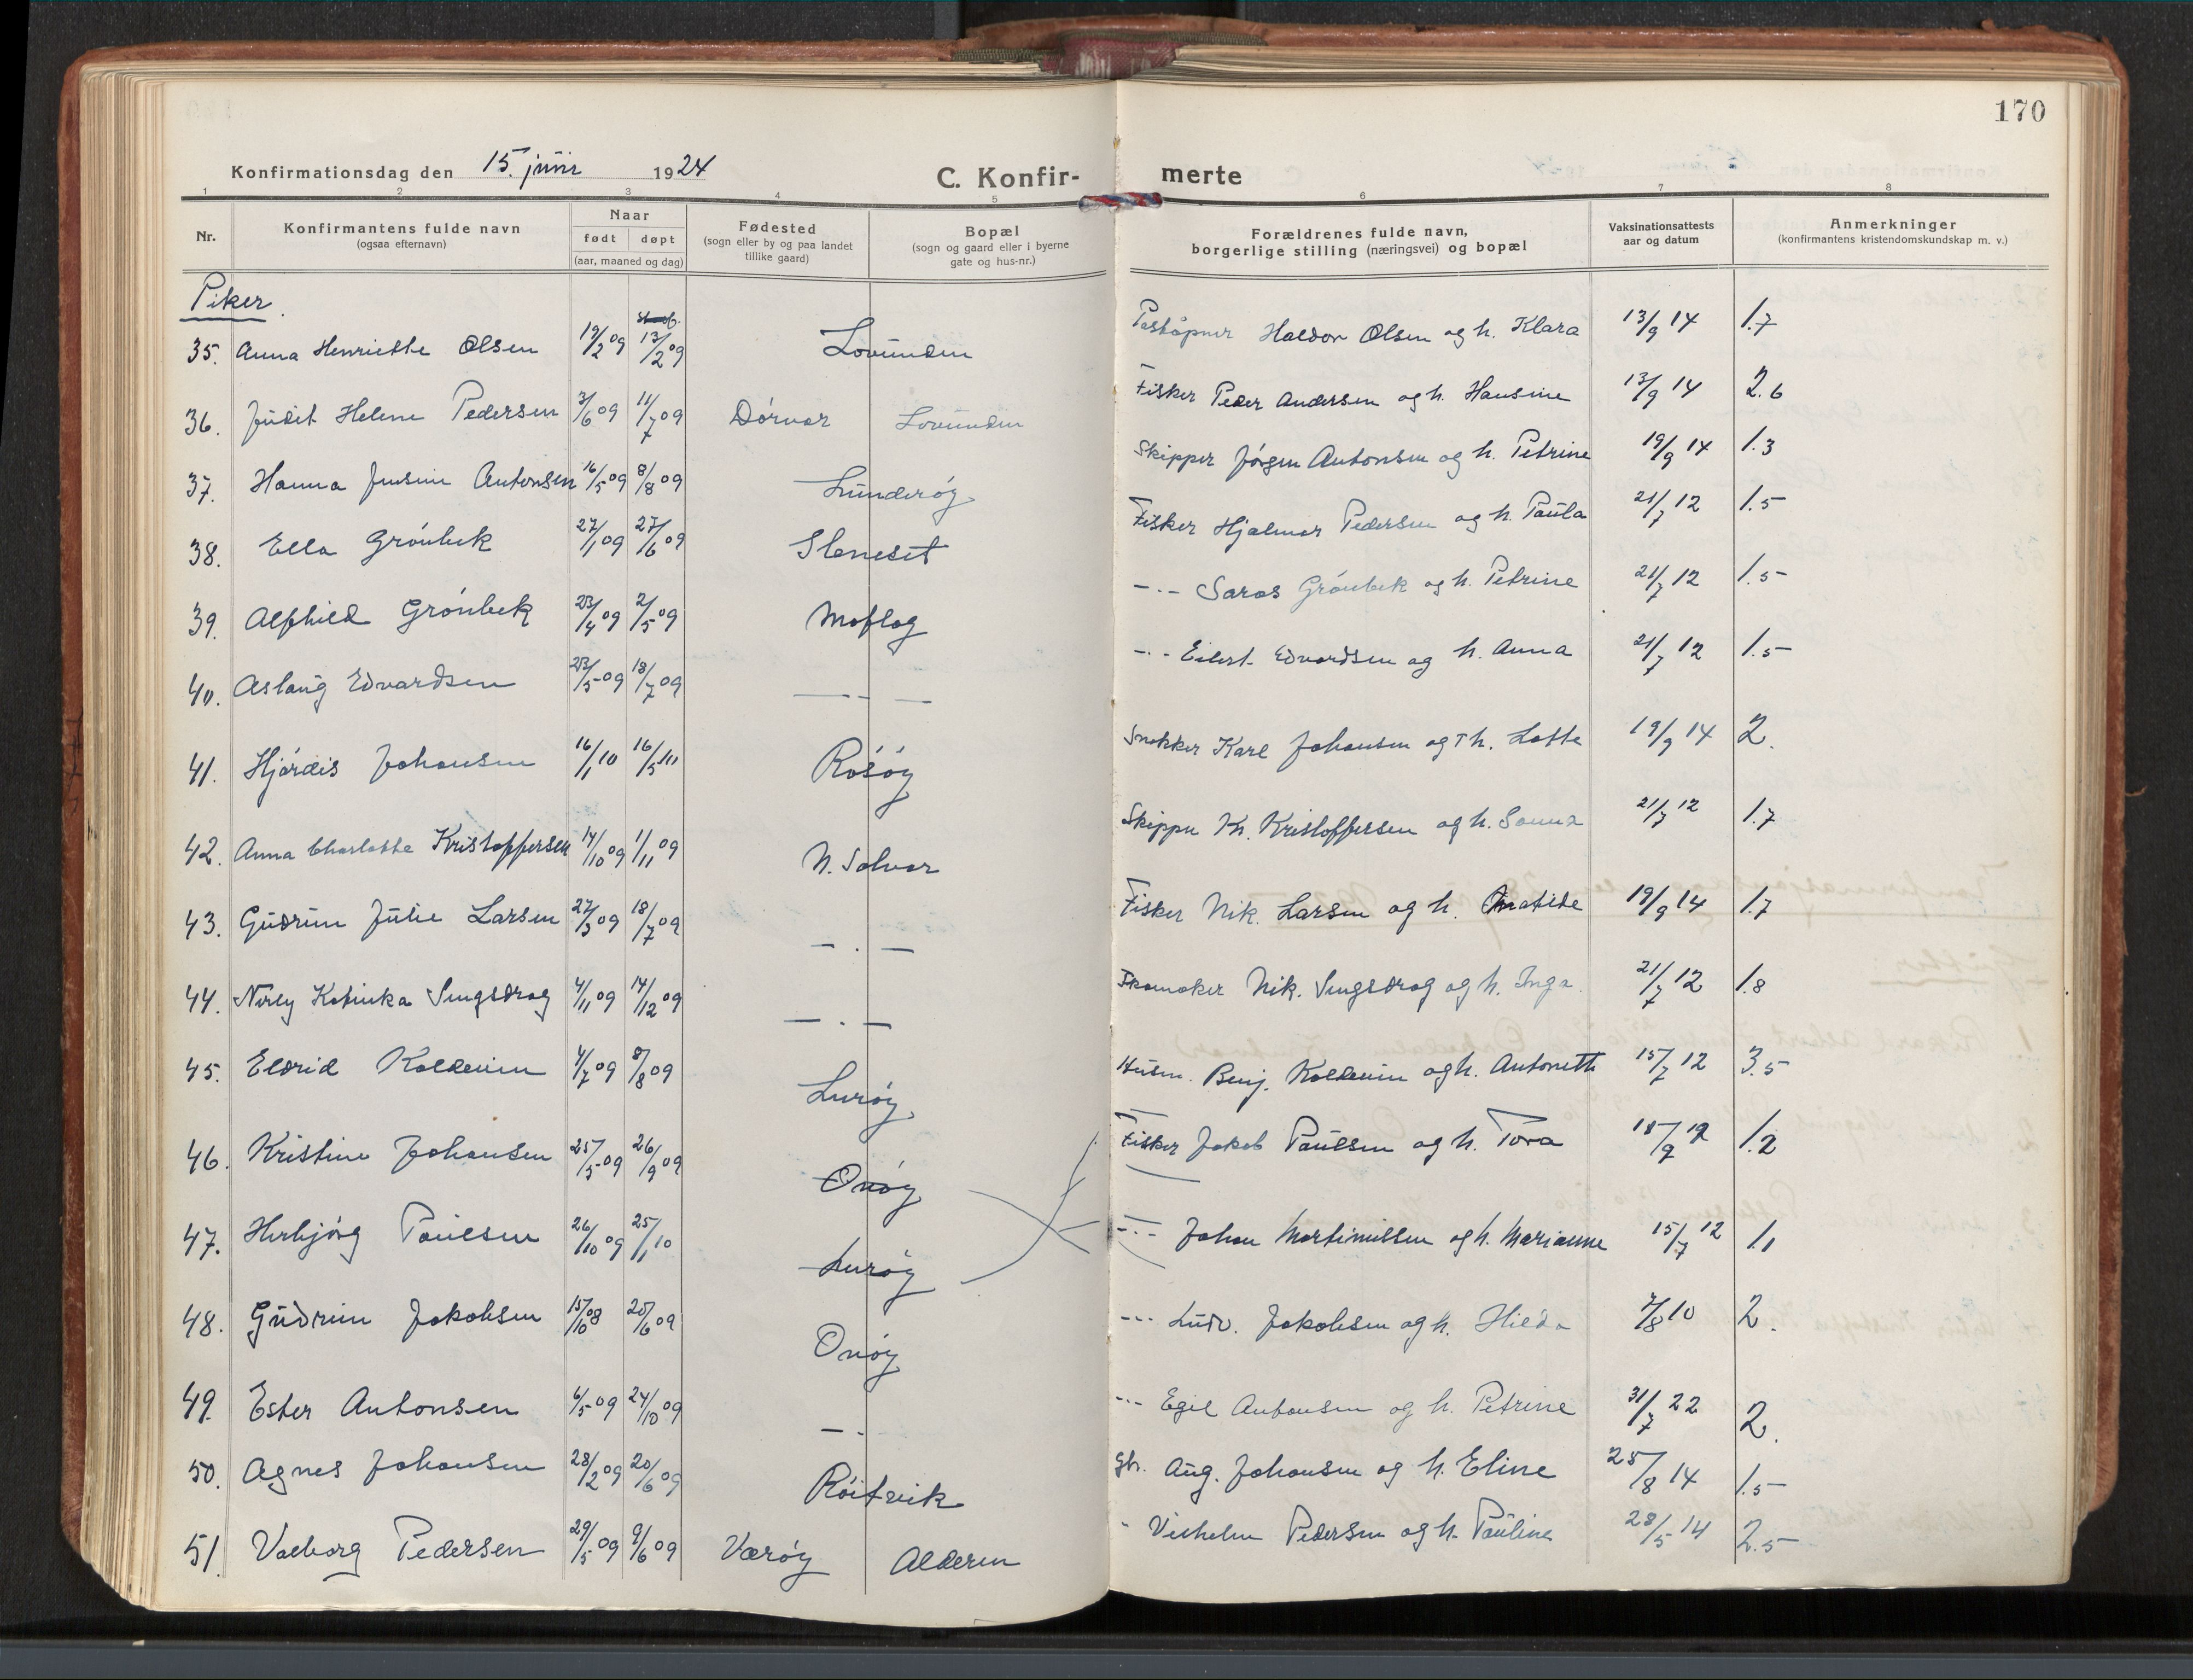 170
Konfirmationsdag den 15. juni 1924
C. Konfir- merte
1 2 3 4 5 6 7 8
Nr. Konfirmantens fulde navn (ogsaa efternavn) Naar født døpt (aar, maaned og dag) Fødested (sogn eller by og paa landet tillike gaard) Bopæl (sogn og gaard eller i byerne gate og hus-nr.) Forældrenes fulde navn, borgerlige stilling (næringsvei) og bopæl Vaksinationsattests aar og datum Anmerkninger (konfirmantens kristendomskundskap m. v.)
Piker.
35. Anna Henriette Olsen 19/2 09 13/2 09 Lovunden Poståpner Haldor Olsen og h. Klara 13/9 14 1.7
36. Judit Helene Pedersen 3/6 09 11/7 09 Dørvær Lovunden Fisker Peder Andersen og h. Hansine 13/9 14 2.6
37. Hanna Jensine Antonsen 16/5 09 8/8 09 Lunderøy Skipper Jørgen Antonsen og h. Petrine 19/9 14 1.3
38. Ella Grønbek 27/1 09 27/6 09 Sleneset Fisker Hjalmar Pedersen og h. Paula 21/7 12 1.5
39. Alfhild Grønbek 23/4 09 2/5 09 Moflag -.- Saras Grønbek og h. Petrine 21/7 12 1.5
40. Aslaug Edvardsen 23/5 09 18/7 09 — - — -.- Eilert Edvardsen og h. Anna 21/7 12 1.5
41. Hjørdis Johansen 16/1 10 16/5 10 Røsøy Snekker Karl Johansen og h. Lotte 19/9 14 2.
42. Anna Charlotte Kristoffersen 14/10 09 1/11 09 N. Solvær Skipper Kr. Kristoffersen og h. Sanna 21/7 12 1.7
43. Gudrun Julie Larsen 27/3 09 18/7 09 — . — Fisker Nik. Larsen og h. Matilde 19/9 14 1.7
44. Nelly Katinka Sengsdrag 4/11 09 14/12 09 — . — Skomaker Nik. Sengsdrag og h. Inga. 21/7 12 1.8
45. Eldrid Koldevin 4/7 09 8/8 09 Lurøy Husm. Benj. Koldevin og h. Antonette 15/7 12 3.5
46. Kristine Johansen 25/5 09 26/9 09 Onøy Fisker Jakob Paulsen og h. Tora 15/7 12 1.2
47. Herbjørg Paulsen 26/10 09 25/1 10 Lurøy -.- Johan Martinussen og h. Marianne 15/7 12 1.1
48. Gudrun Jakobsen 15/10 08 20/6 09 Onøy --- Ludv. Jakobsen og h. Hilda 7/8 10 2.
49. Ester Antonsen 6/5 09 24/10 09 — . --- Egil Antonsen og h. Petrine 31/7 22 2.
50. Agnes Johansen 28/2 09 20/6 09 Røitvik Gbr. Aug. Johansen og h. Eline 25/8 14 1.5
51. Valborg Pedersen 29/5 09 9/6 09 Værøy Alderen - Vilhelm Pedersen og h. Pauline 28/5 14 2.5